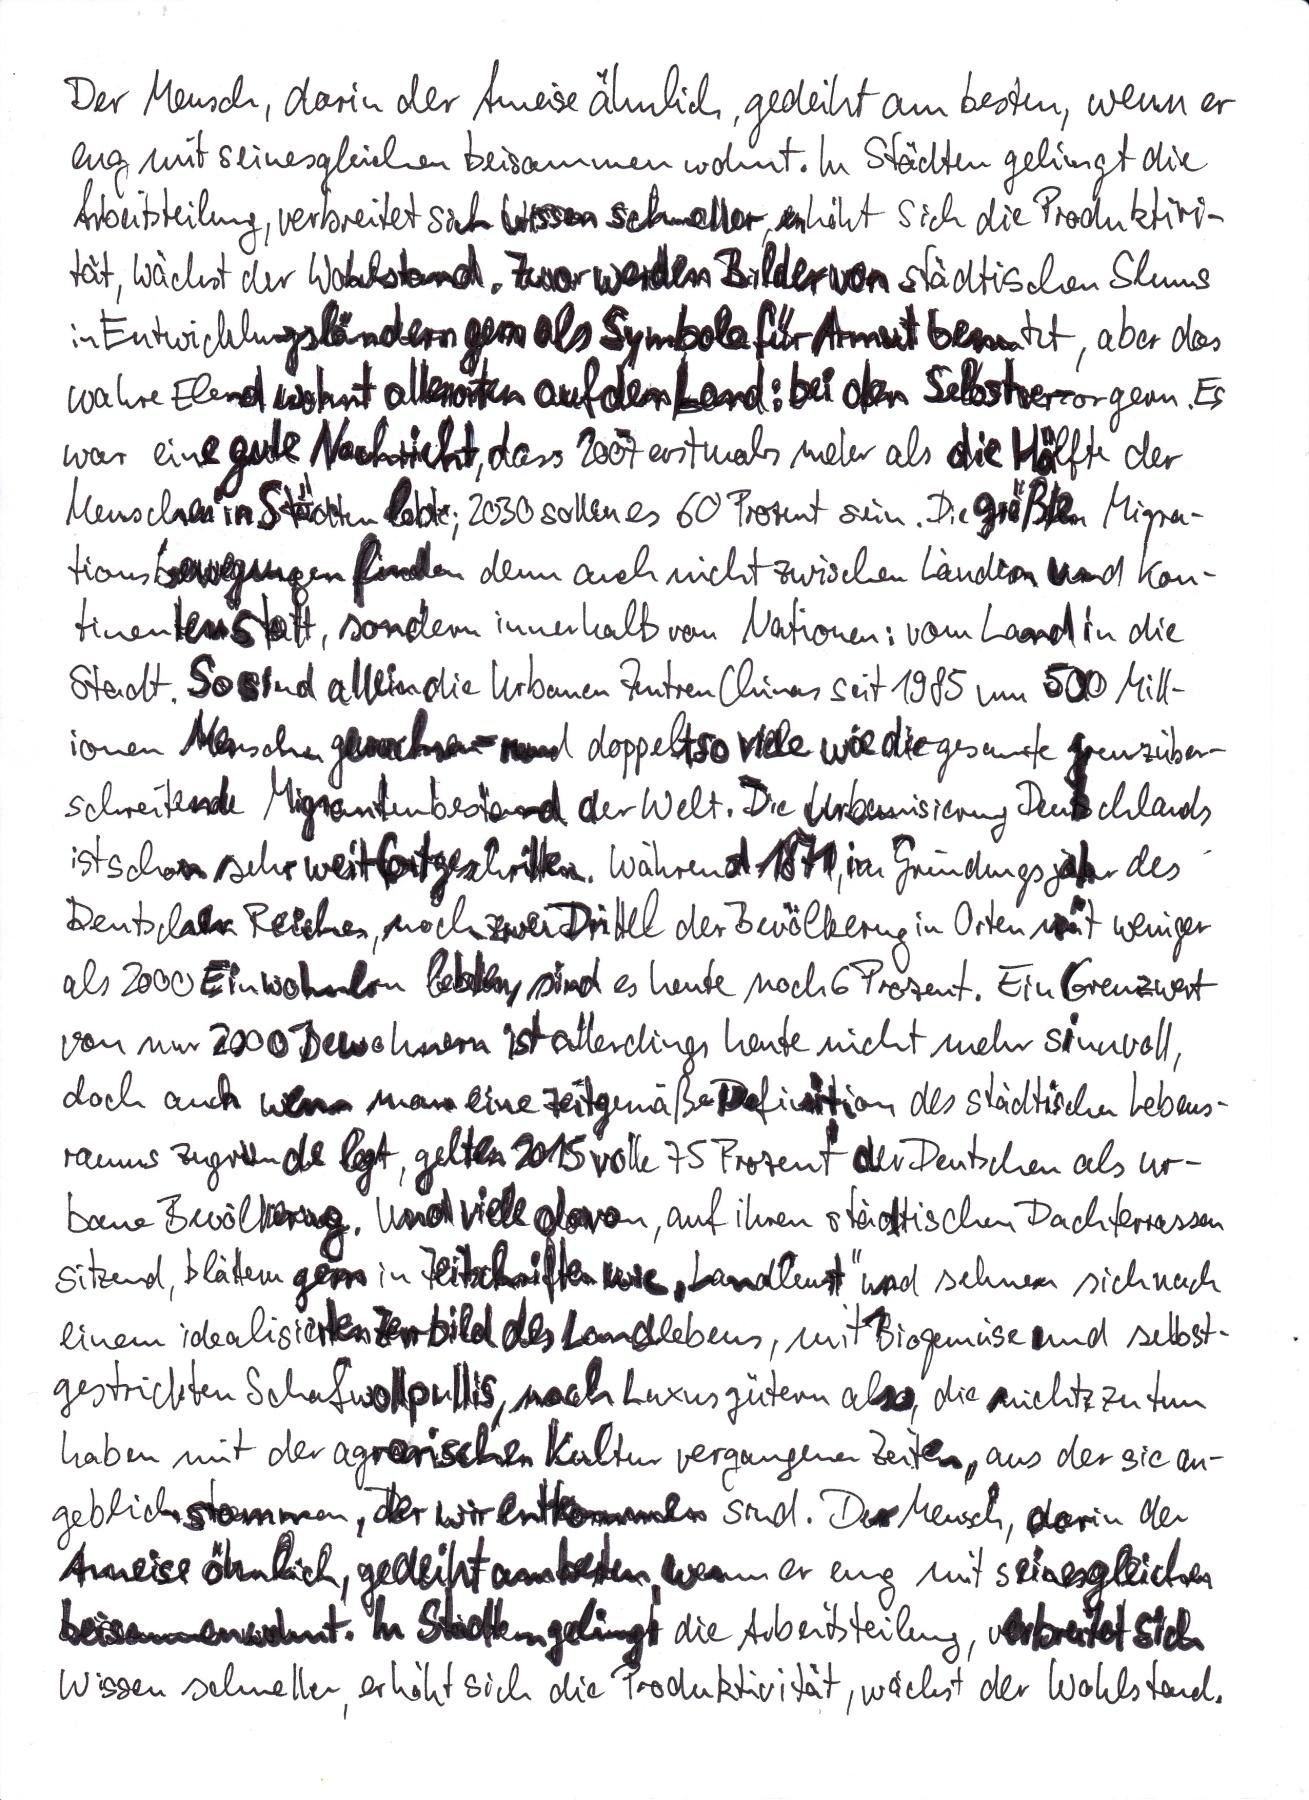 Der Mensch, darin der Ameise ähnlich, gedeiht am besten, wenn er
eng mit seinesgleichen beisammen wohnt. In Städten gelingt die
Arbeitsteilung, verbreitet sich Wissen schneller, erhöht sich die Produktivi-
tät, wächst der Wohlstand. Zwar werden Bilder von städtischen Slums
in Entwicklungsländern gern als Symbole für Armut benutzt, aber das
wahre Elend wohnt allerorten auf dem Land: bei den Selbstversorgern. Es
war eine gute Nachricht, dass 2007 erstmals mehr als die Hälfte der
Menschen in Städten lebte; 2030 sollen es 60 Prozent sein. Die größten Migra-
tionsbewegungen finden denn auch nicht zwischen Ländern und Kon-
tinenten statt, sondern innerhalb von Nationen: vom Land in die
Stadt. So sind allein die urbanen Zentren Chinas seit 1985 um 500 Mill-
ionen Menschen gewachsen – rund doppelt so viele wie die gesamte grenzüber-
schreitende Migrantenbestand der Welt. Die Urbanisierung Deutschlands
ist schon sehr weit fortgeschritten. Während 1871, im Gründungsjahr des
Deutschen Reiches, noch zwei Drittel der Bevölkerung in Orten mit weniger
als 2000 Einwohnern lebten, sind es heute noch 6 Prozent. Ein Grenzwert
von nur 2000 Bewohnern ist allerdings heute nicht mehr sinnvoll,
doch auch wenn man eine zeitgemäße Definition des städtischen Lebens-
raums zugrunde legt, gelten 2015 volle 75 Prozent der Deutschen als ur-
bane Bevölkerung. Und viele davon, auf ihren städtischen Dachterrassen
sitzend, blättern gern in Zeitschriften wie „Landlust" und sehnen sich nach
einem idealisierten Zerrbild des Landlebens, mit Biogemüse und selbst-
gestrickten Schafwollpullis, nach Luxusgütern also, die nichts zu tun
haben mit der agrarischen Kultur vergangener Zeiten, aus der sie an-
geblich stammen, der wir entkommen sind. Der Mensch, darin der
Ameise ähnlich, gedeiht am besten, wenn er eng mit seinesgleichen
beisammenwohnt. In Städten gelingt die Arbeitsteilung, verbreitet sich
Wissen schneller, erhöht sich die Produktivität, wächst der Wohlstand.